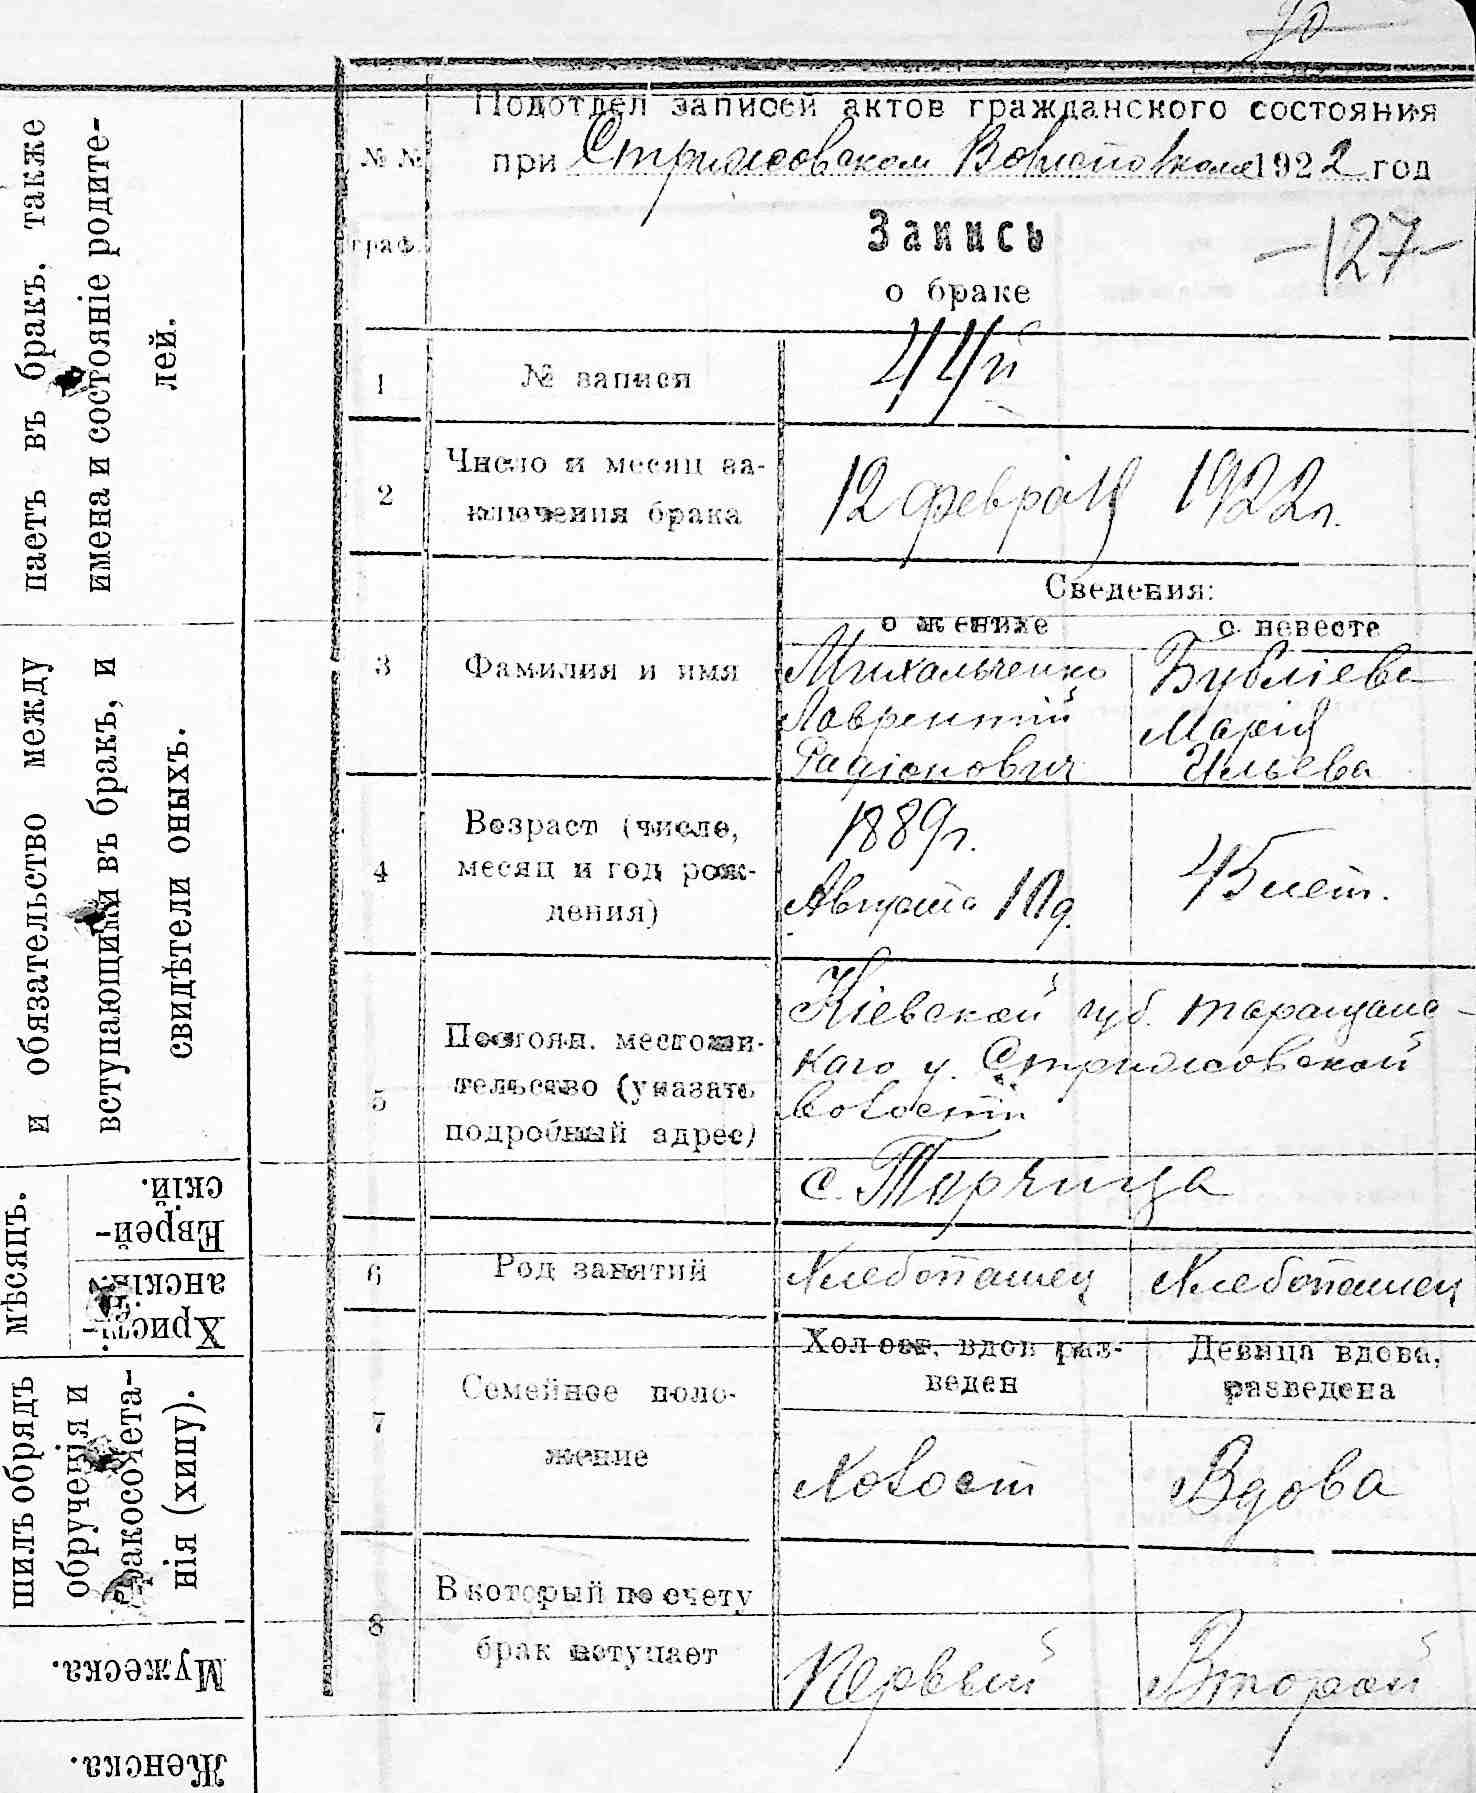 70
Подотдел записей актов гражданского состояния
при Стрижовском Волисполкоме 1922 год
№ №
граф.
Запись
о браке
-127-
1
№ записи
44й
2
Число и месяц за-
ключения брака
12 февраля 1922 г.
Сведения:
о женихе
о невесте
3
Фамилия и имя
Михальченко
Лаврентій
Радіонович
Бубліева
Марія
Ильева
4
Возраст (число,
месяц и год рож-
дения)
1889 г.
Августа 10 д.
45 лет.
5
Постоян. местожи-
тельство (указать
подробный адрес)
Кіевской губ. таращанс-
каго у. Стрижовской
волости
с. Торчица
6
Род занятий
Хлебопашец
Хлебопашец
7
Семейное поло-
жение
Холост, вдов раз-
веден
Девица вдова,
разведена
Холост
Вдова
8
В который по счету
брак вступает
Первый
Второй
паетъ въ бракъ, также
имена и состояніе родите-
лей.
и обязательство между
вступающими въ бракъ, и
свидѣтели оныхъ.
мѣсяцъ.
Еврей-
скій.
Христі-
анскій.
шилъ обрядъ
обрученія и
бракосочета-
нія (хипу).
Мужеска.
Женска.